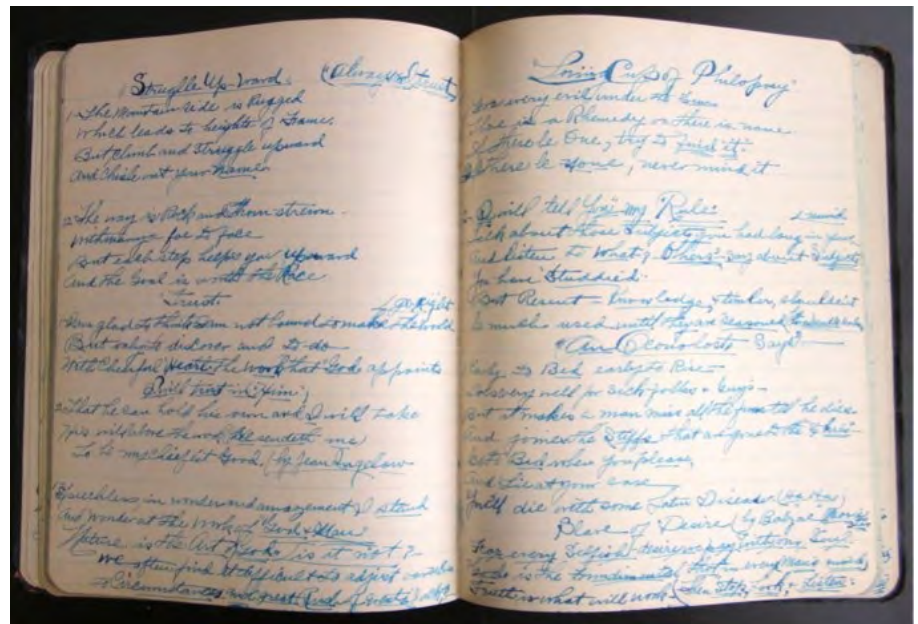 Struggle Up-ward. (Always & Trust)
1-The Mountain side is Rugged
Which leads to heights of Fame.
But Climb and Struggle upward
And Chisle out your Name.
2-The way is Rock and Thorn strewn.
With many a foe to face
But each step helps you upward
And the Goal is worth the Race
Trust. go right
glad to think I am not bound to make the world
But only to discover and to do
With Chearful Heart the work that God appoints
I will trust in Him,
2-That he can hold his own and I will take
His will above the work He sendeth me
To be my chiefest Good. (by Jean Ingelow
Speechless in wonder and amazement I stand
And wonder at the work of God & Man
Nature is the Art of God, is it not?
we often find it difficult to adjust ourselves
to Circumstances and great
"Loving Cup of Philosophy"
For every evil under the Sun
There is a Rhemedy or there is none
If there be One, try to find it.
If there be none, never mind it
I will tell You my Rule.
Talk about those Subjects you had long in mind
And listen to What Others say about Subjects
You have Studdied.
But Recent - Knowledge, & timber, shouldn't
be much used until they are seasoned
"An Economosts Says"
Early to Bed early to Rise -
does very well for sick-folks & Guys -
But it makes a man miss all the fun till he dies.
And joines the Stiffs that are gone to the Skies -
Go to Bed when you please,
And Lie at your ease
You'll die with some Latin Disease (Ha Ha)
by Balzac
For every Selfish desire we pay
is the fundimental in every Mans mind,
what will work - (then Stop, Look, & Listen.